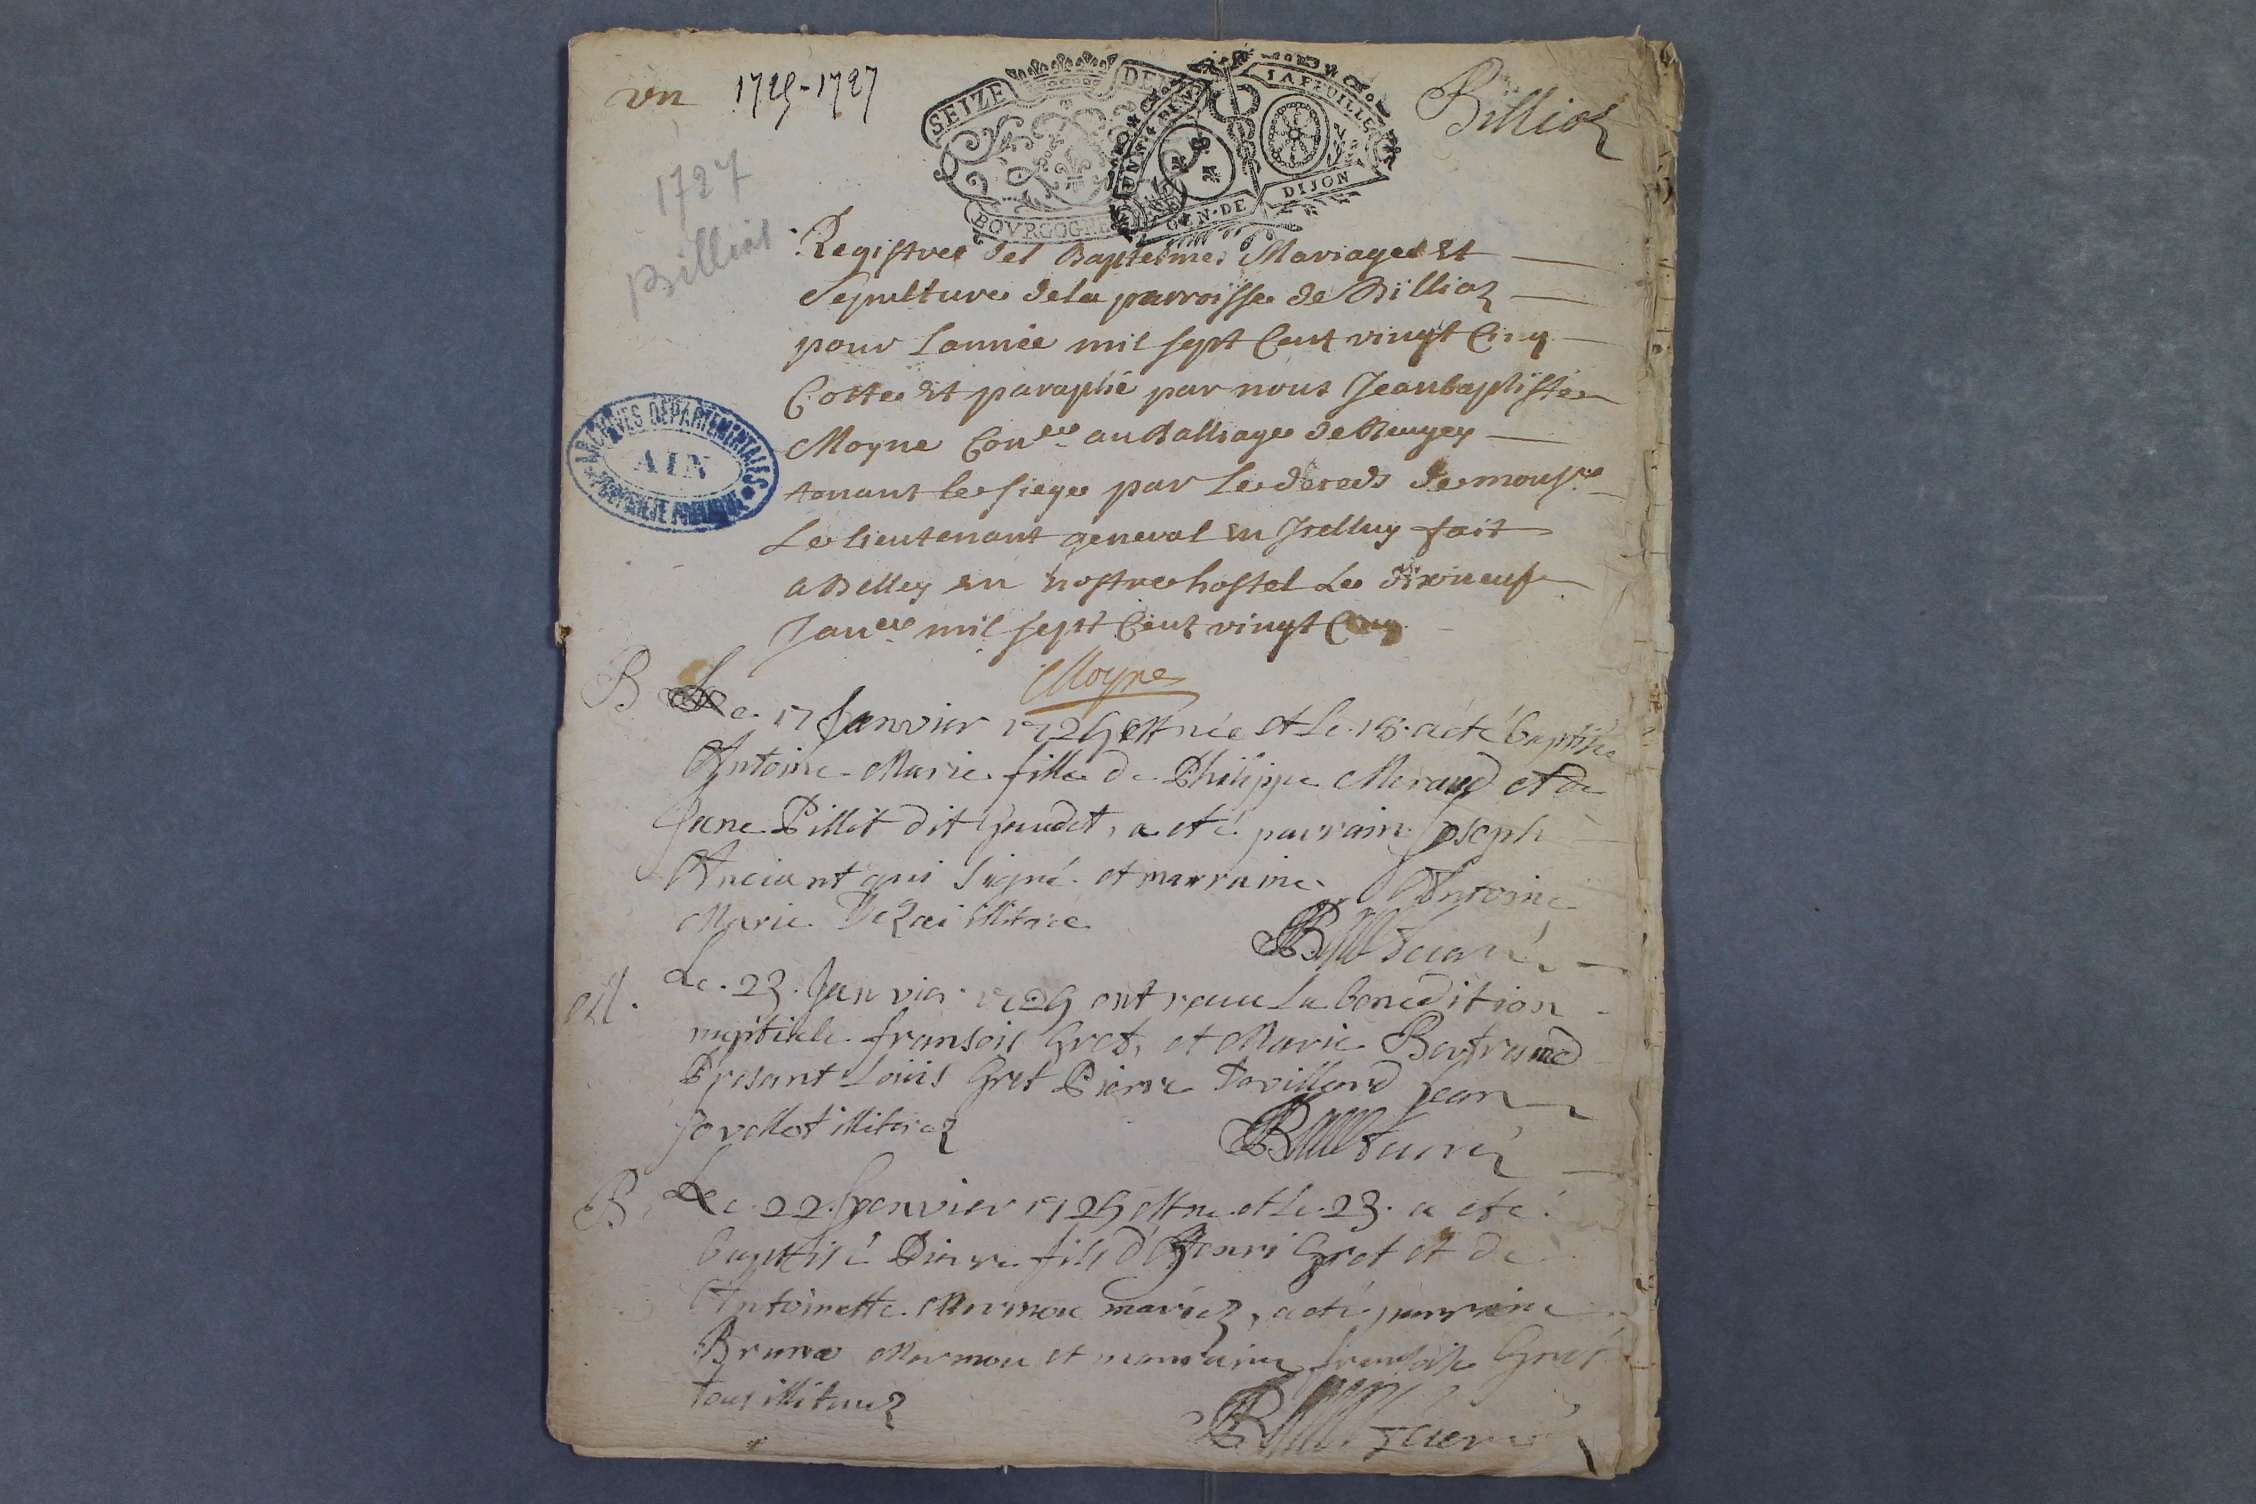 vn 1725-1727
SEIZE DEN
BOVRGOGNE
LA FEUILLE
GEN. DE DIJON
Billiaz
1727
Billiat
Registres des Baptesmes Mariages Et
Sepultures de la parroisse de Billiaz
pour Lannée mil sept Cent vingt Cinq
Cotté Et paraphé par nous Jean baptiste
Moyne Con.er au Balliage de Bugey
tenant le siege par Le deceds de mons.r
Le lieutenant general En Icelluy fait
a Belley En nostre hostel Le dixneuf
Jan.er mil sept Cent vingt Cinq
Moyne
ARCHIVES DEPARTEMENTALES
AIN
B Le 17 Janvier 1725 est née et le 18 a été baptisée
Antoine-Marie fille de Philippe Moraud et de
Jane Pillet dit Gaudet, a eté parrain Joseph
Anciant qui signé et marraine Antoine
Marie illitree
M. Le 23 Janvier 1725 ont receu La benedition
nuptiale fransois Gret, et Marie Bertrand
Presant Loüis Gret Pierre Tavillard Jean
Jovellet illiterez
B Le 22 Janvier 1725 est ne et le 23 a eté
baptisé Pierre fils d'Henri Gret et de
Antoinette Marmou mariez, a eté parrain
Marmou et marraine fransoise Gret
tous illiterez